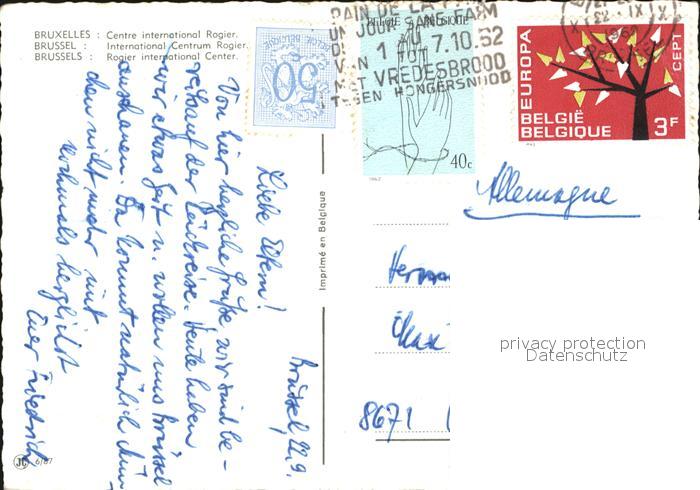 BRUXELLES : Centre international Rogier.
BRUSSEL : Internationaal Centrum Rogier.
BRUSSELS : Rogier international Center.
50
PAIN DE LA PAIX
UN JOUR SANS FAIM
1 AU 7.10.62
VAN TOT
MET VREDESBROOD
TEGEN HONGERSNOOD
BELGIË BELGIQUE
40c
EUROPA
CEPT
BELGIË
BELGIQUE
3F
Imprimé en Belgique
Brüssel, 22.9.
Liebe Eltern!
Von hier herzliche Grüße, wir sind be-
reits auf der Rückreise. Heute haben
wir etwas Zeit u. wollen uns Brüssel
anschauen. Da kommt natürlich
chen nicht mehr mit
Nochmals herzlichst
Euer Friedrich
Allemagne
8671
privacy protection
Datenschutz
6/87